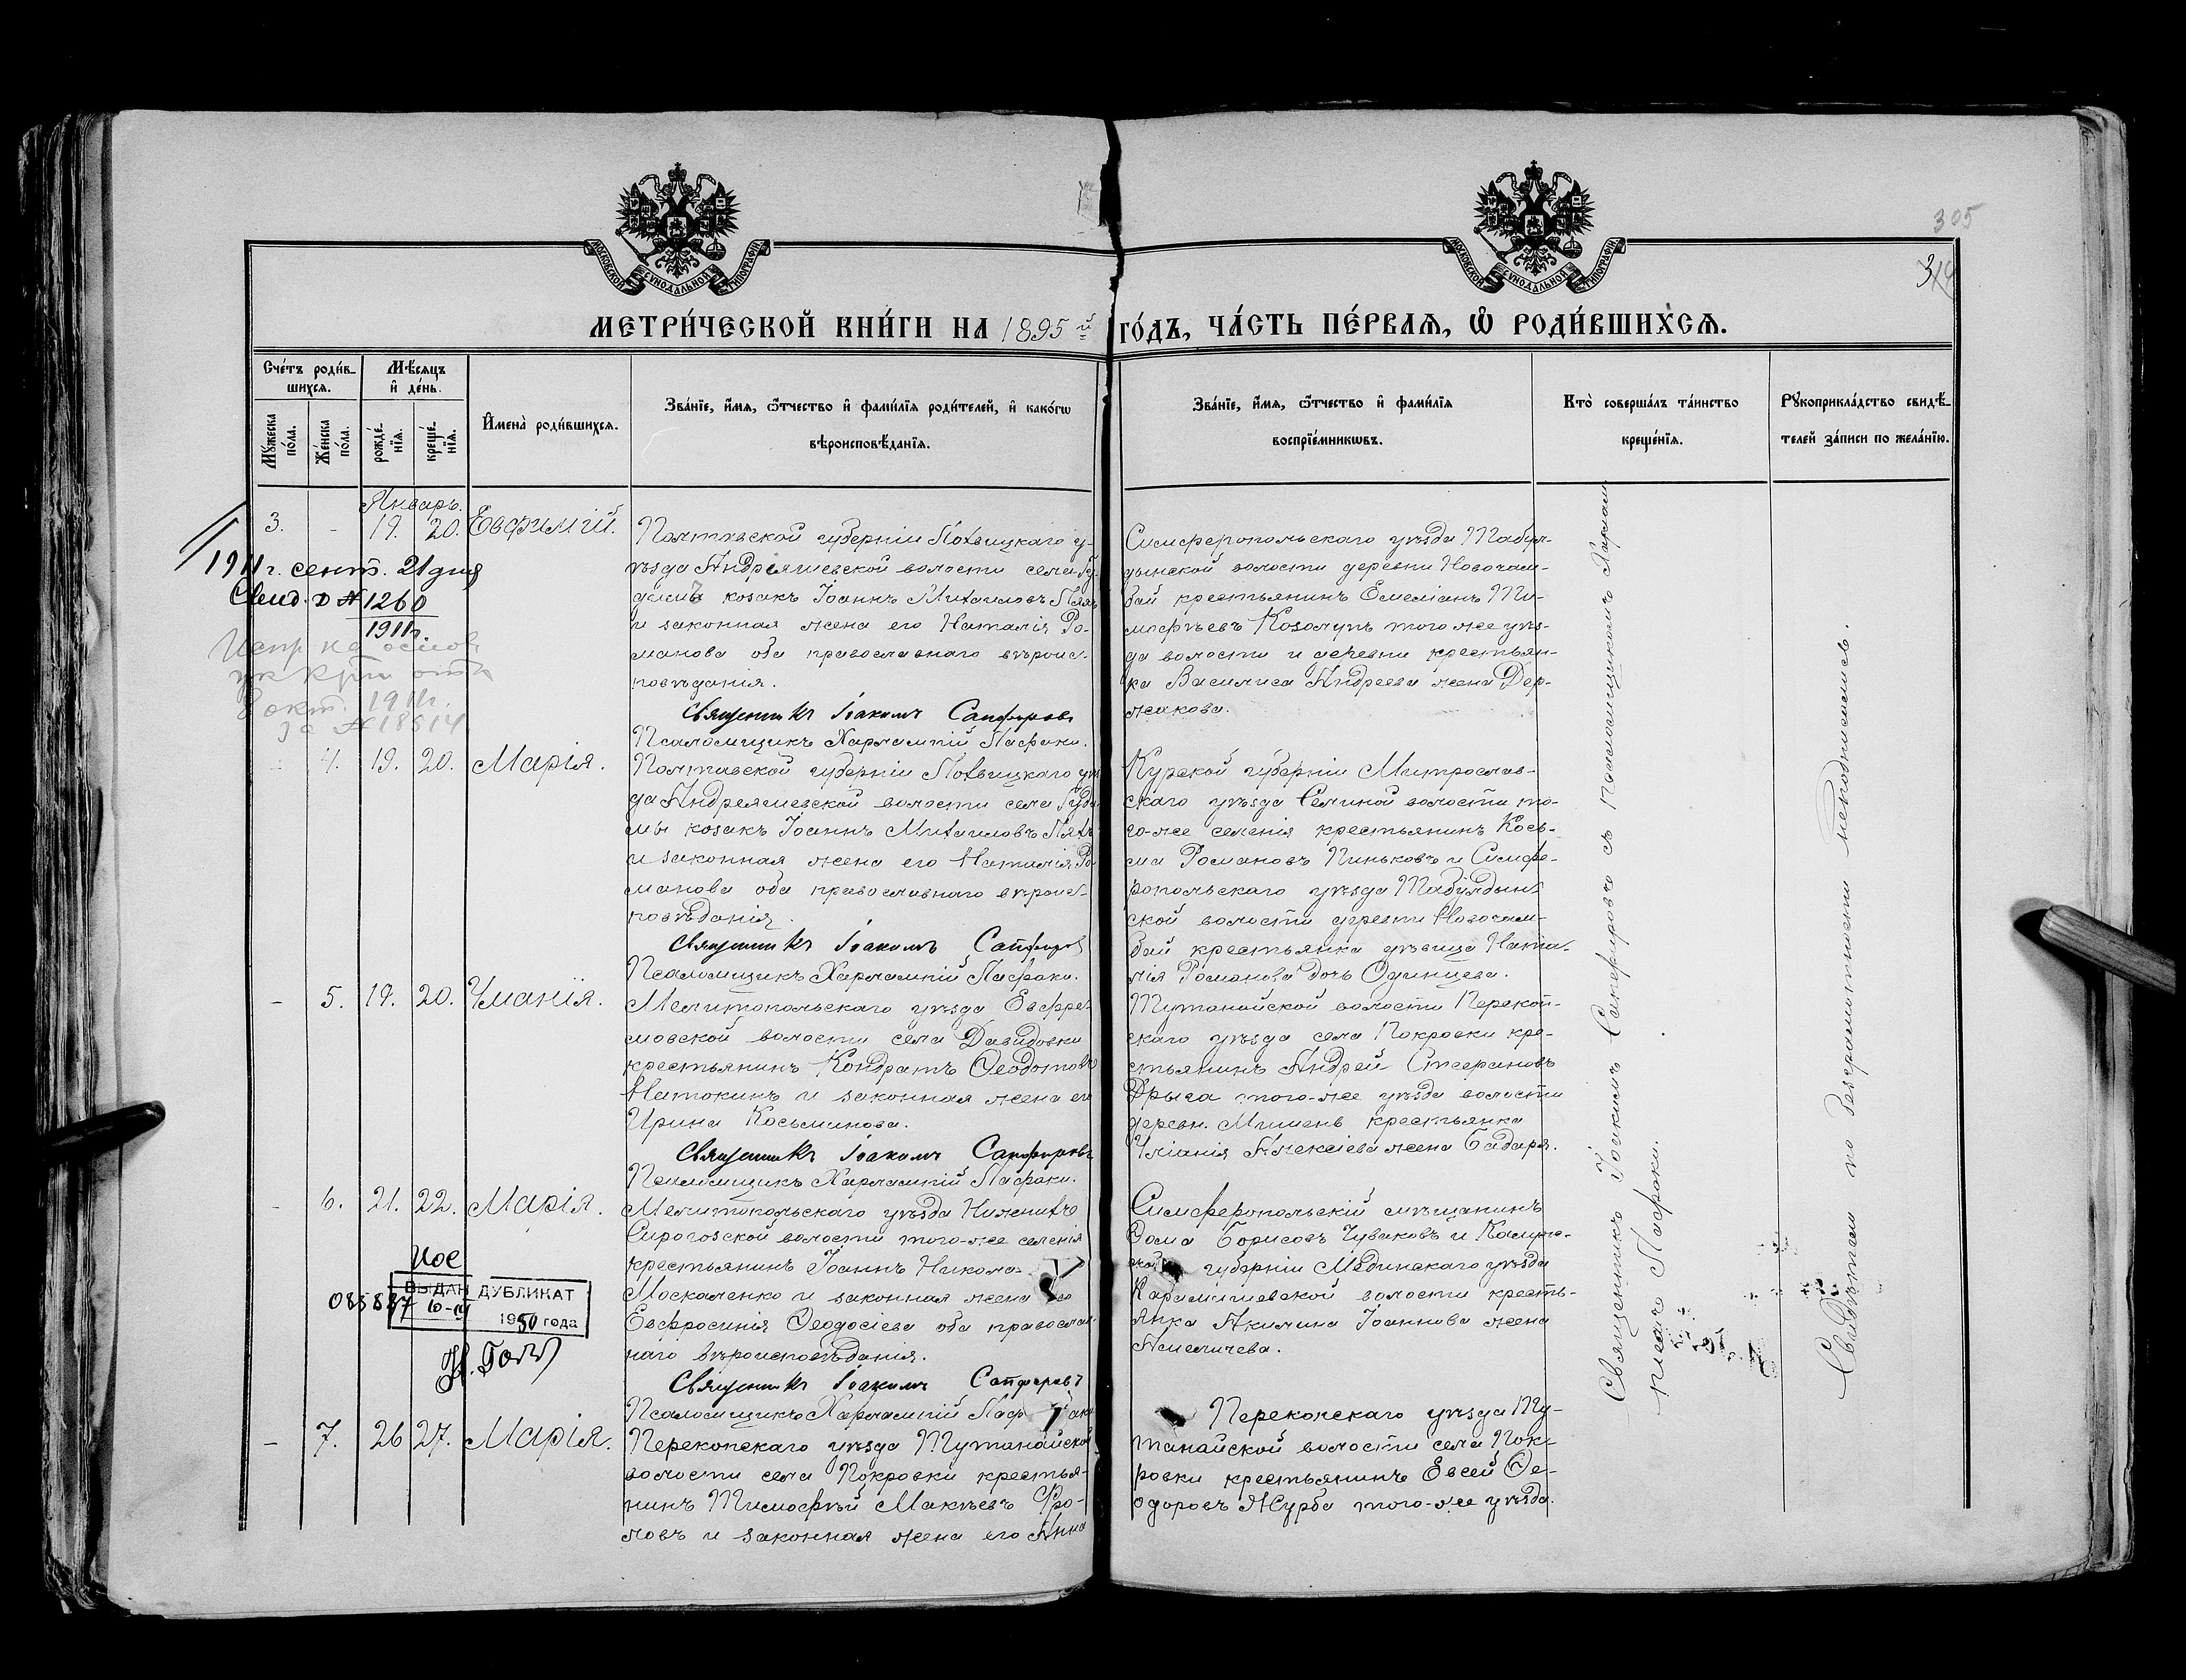 305
314
МОСКОВСКОЙ СѴНОДАЛЬНОЙ ТИПОГРАФІИ
МОСКОВСКОЙ СѴНОДАЛЬНОЙ ТИПОГРАФІИ
МЕТРИ́ЧЕСКОЙ КНИ́ГИ НА 1895 й ГО́ДЪ, ЧА́СТЬ ПЕ́РВАѦ, Ѽ РОДИ́ВШИХСѦ.
Сче́тъ роди́в-
шихсѧ.
Мѣ́сѧцъ
и҆ де́нь.
Мꙋ́жеска
по́ла.
Же́нска
по́ла.
рожде́-
нїѧ.
креще́-
нїѧ.
И҆мена̀ роди́вшихсѧ.
Зва́нїе, и҆́мѧ, ѻ҆́тчество и҆ фами́лїѧ роди́телей, и҆ како́гѡ
вѣроисповѣ́данїѧ.
Зва́нїе, и҆́мѧ, ѻ҆́тчество и҆ фами́лїѧ
воспрїе́мникѡвъ.
Кто̀ соверша́лъ та́инство
креще́нїѧ.
Рꙋкоприкла́дство свидѣ́-
телей за́писи по жела́нїю.
Январь.
3. - 19. 20. Евфимій.
1911 г. сент. 21 дня
Свид. №1260
1911 г.
8 окт. 1911 г.
за №18514
Полтавской губерніи Лохвицкаго у-
ѣзда Андреяшевской волости села Гу-
козакъ Іоаннъ Михаиловъ
и законная жена его Наталія Ро-
манова оба православнаго вѣроис-
повѣданія.
Священникъ Іоакимъ Сапфировъ
Псаломщикъ Харлампій Пасфаки.
Симферопольскаго уѣзда Табул-
дынской волости деревни Новочам-
бай крестьянинъ Емеліанъ Ти-
мофѣевъ Козолупъ того же уѣз-
да волости и деревни крестьян-
ка Василиса Андреева жена Дер-
жакова.
- 4. 19. 20. Марія.
Полтавской губерніи Лохвицкаго уѣз
да Андреяшевской волости села Гуди
мы козакъ Іоаннъ Михаиловъ
и законная жена его Наталія Ро
манова оба православнаго вѣроис-
повѣданія.
Священникъ Іоакимъ Сапфировъ
Псаломщикъ Харлампій Пасфаки.
Курской губерніи Митрослав-
скаго уѣзда Селиной волости то-
го-же селенія крестьянинъ Кось-
ма Романовъ Пиньковъ и Симфе-
ропольскаго уѣзда Табулдын-
ской волости деревни Новочам-
бай крестьянка дѣвица Ната-
лія Романова дочь Одинцева.
- 5. 19. 20. Уліанія.
Мелитопольскаго уѣзда Ефре-
мовской волости села Давидовки
крестьянинъ Кондратъ Ѳеодотовъ
Натокинъ и законная жена его
Ирина Косьминова.
Священникъ Іоакимъ Сапфировъ
Псаломщикъ Харлампій Пасфаки.
Тутанайской волости Перекоп-
скаго уѣзда села Покровки кре-
стьянинъ Андрей Стефановъ
Дрыга того-же уѣзда волости
деревн. Мишень крестьянка
Уліанія Алексіева жена Бадаря.
- 6. 21. 22. Марія.
085887
ВЫДАН ДУБЛИКАТ
1950 года
Мелитопольскаго уѣзда Нижнихъ
Сирогозской волости того-же селенія
крестьянинъ Іоаннъ Никола-
Москаленко и законная жена его
Евфросинія Ѳеодосіева оба православ
наго вѣроисповѣданія.
Священникъ Іоакимъ Сапфировъ
Псаломщикъ Харлампій Пасфаки
Симферопольскій мѣщанинъ
Ѳома Борисовъ Чуваковъ и Калуж-
ской губерніи Мединскаго уѣзда
Карамишевской волости кресть-
янка Акилина Іоаннова жена
Амеличева.
- 7. 26 27. Марія.
Перекопскаго уѣзда Тутанайской
волости села Покровки крестья-
нинъ Тимофѣй Макѣевъ Фро-
ловъ и законная жена его Анна
Перекопскаго уѣзда Ту-
танайской волости села Пок-
ровки крестьянинъ Евсей Ѳе-
одоровъ Журба того-же уѣзда.
Священникъ Іоакимъ Сапфировъ съ псаломщикомъ Харлам-
піемъ Пасфаки.
Свидѣтели по безграмотности неподписались.